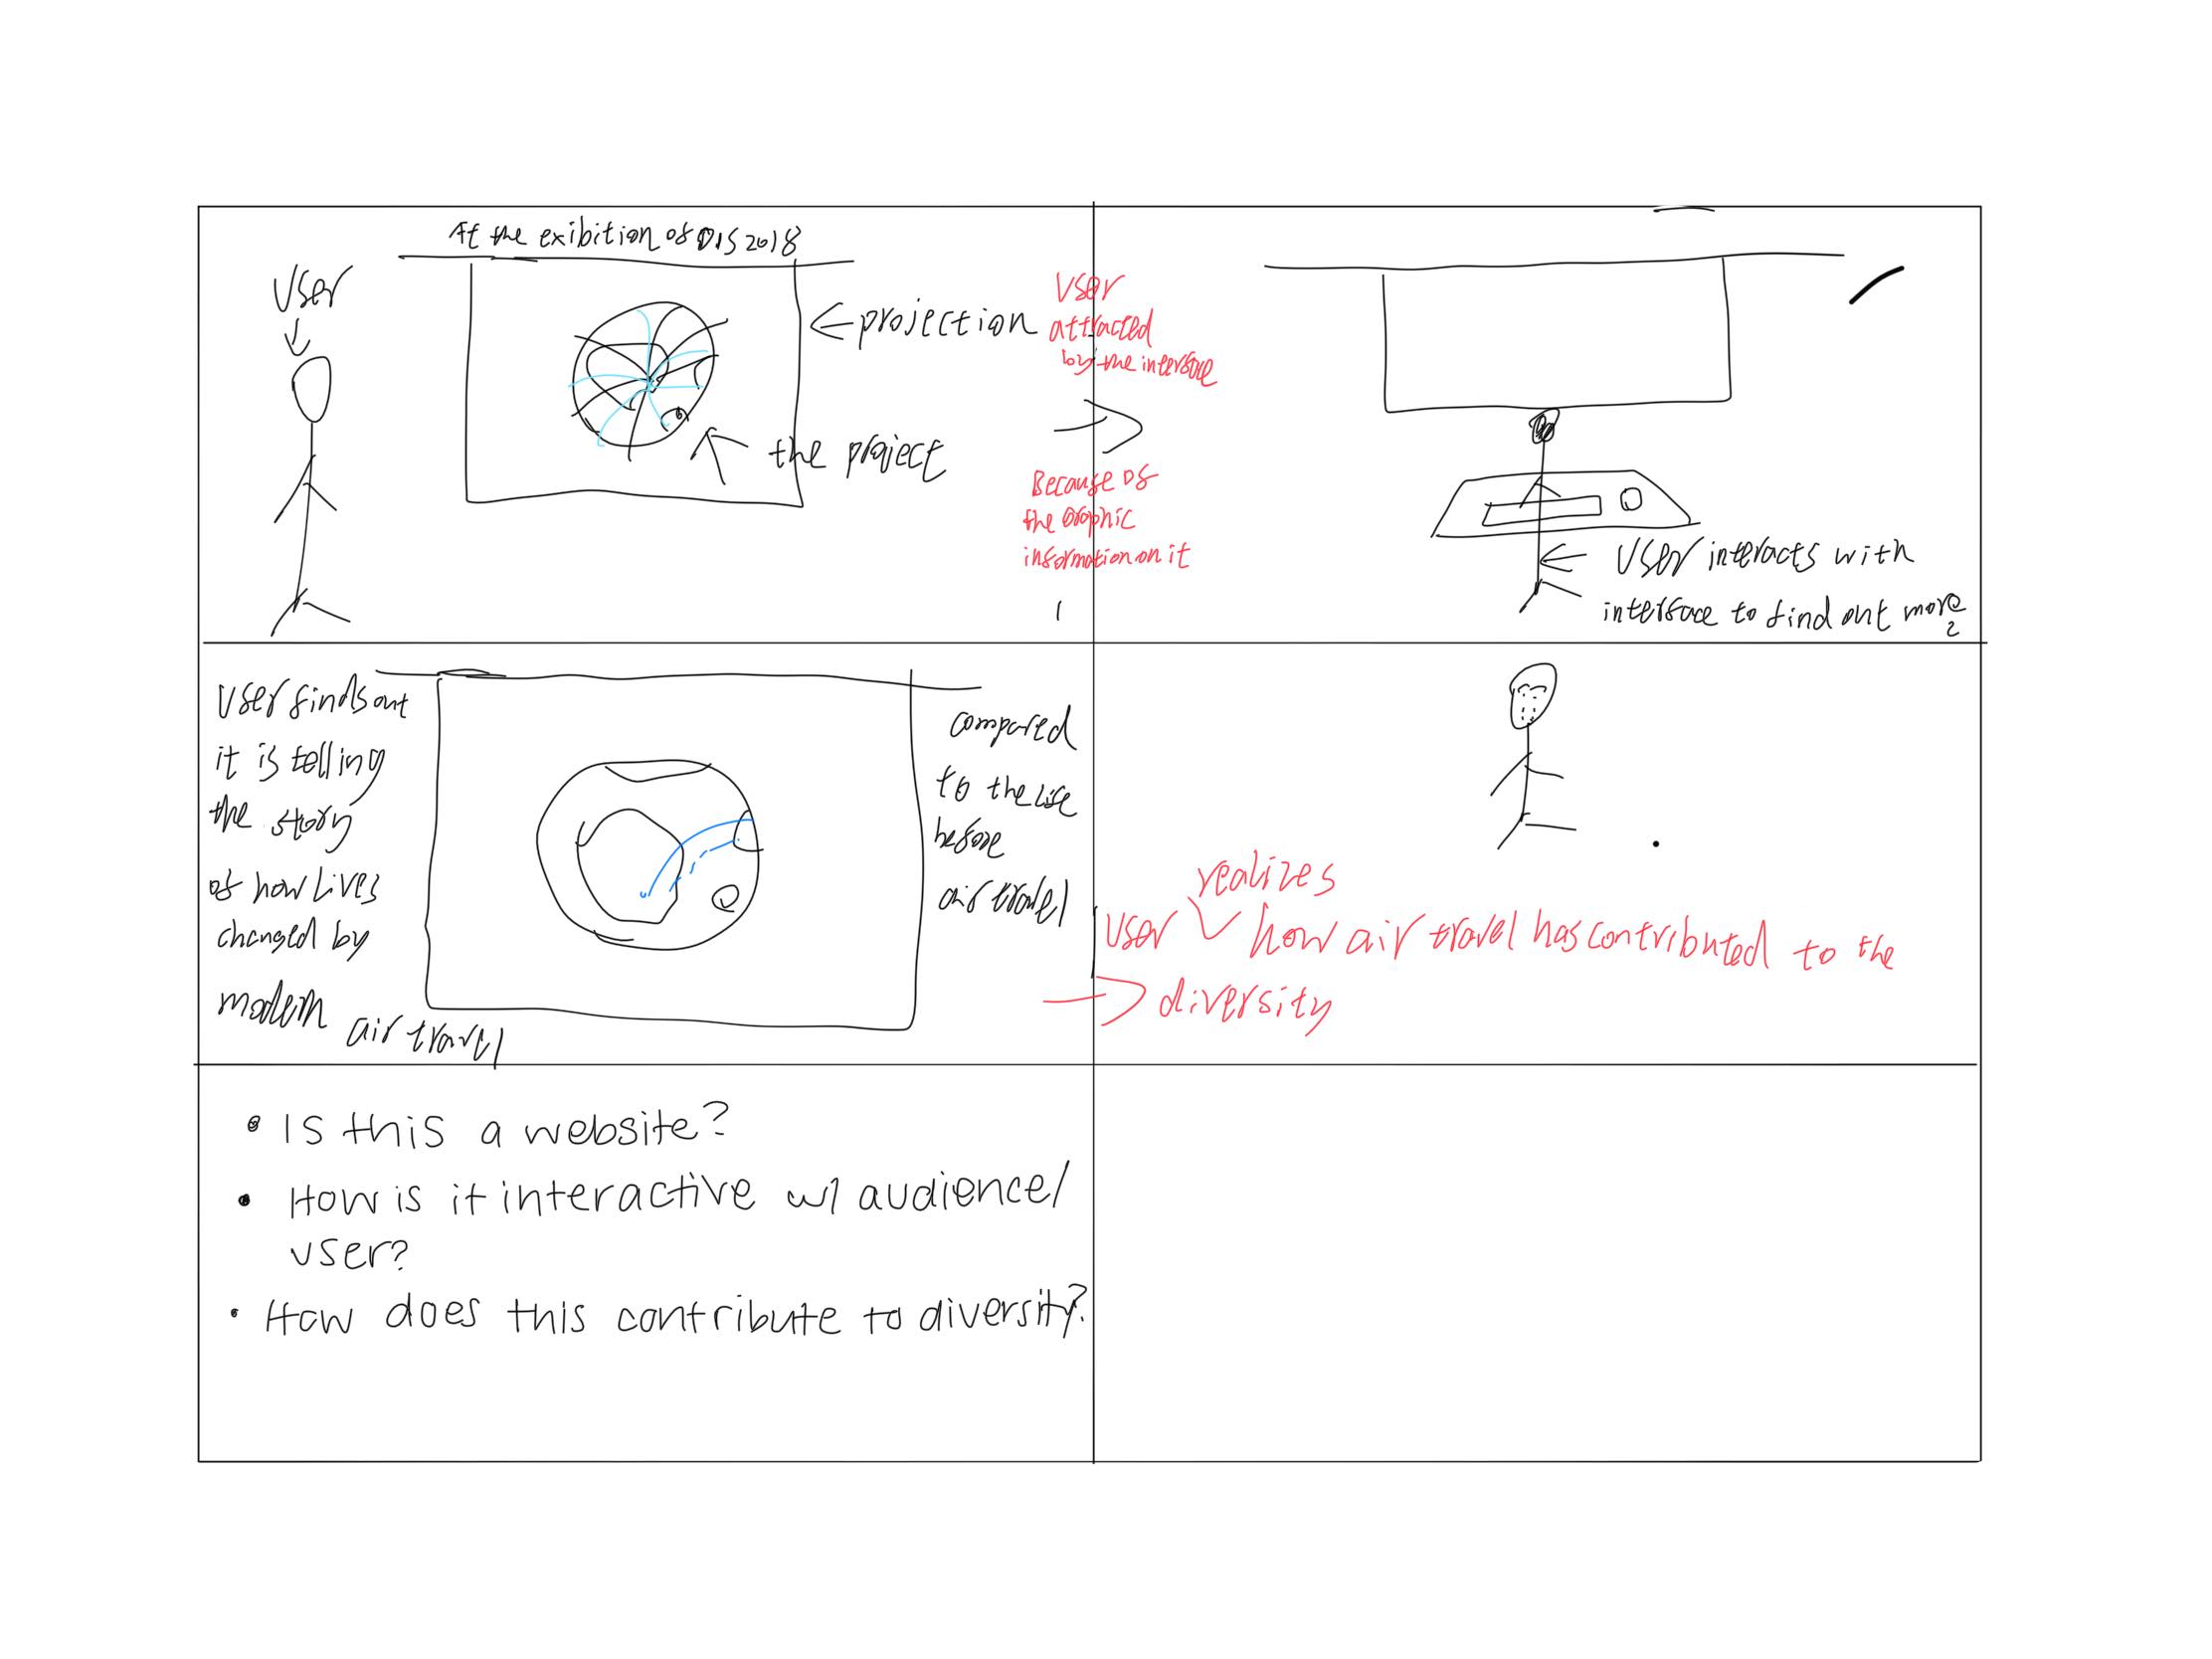 At the exibition of DIS 2018
User
projection
the project
User
attracted
by the interface
Because of
the graphic
information on it
1
User interacts with
interface to find out more
2
User finds out
it is telling
the story
of how lives
changed by
modern air travel
compared
to the life
before
air travel
realizes
User how air travel has contributed to the
diversity
• Is this a website?
• How is it interactive w/ audience/
user?
• How does this contribute to diversity?